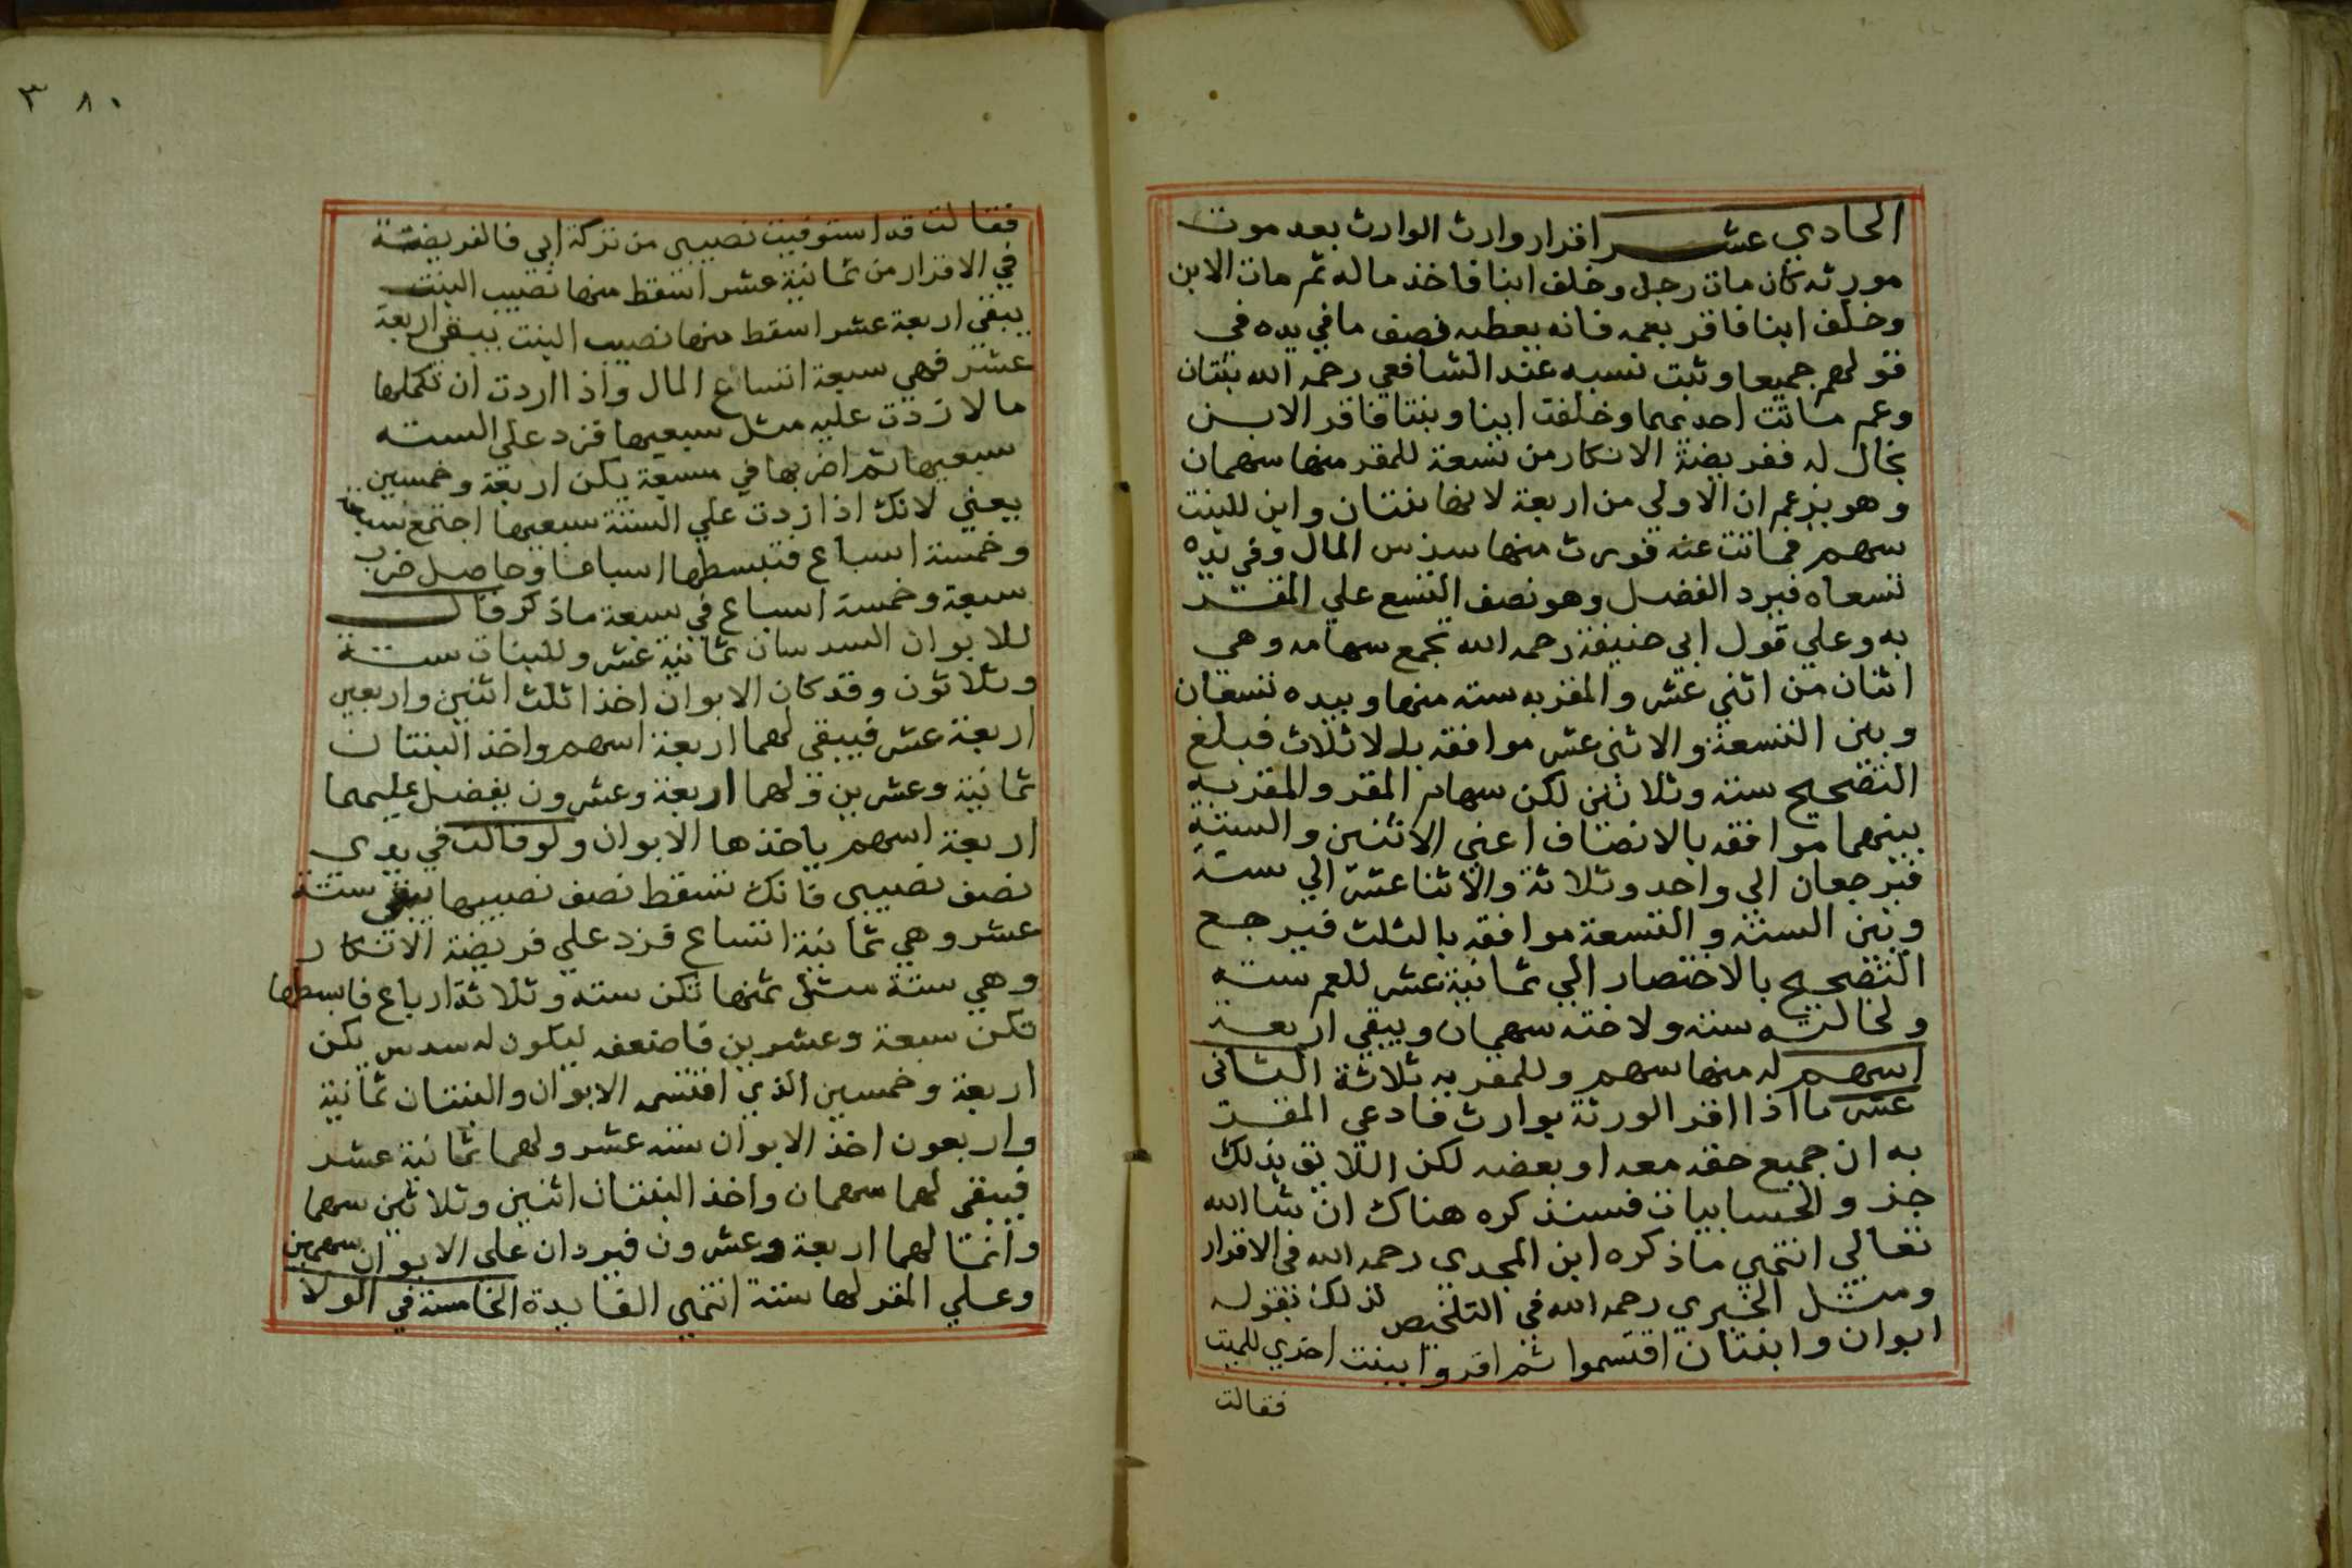 الحادي عشر اقرار وارث الوارث بعد موت
مورثه كان مات رجل وخلف ابنا فاخذ ماله ثم مات الابن
وخلف ابنا فاقر بعمه فانه يعطيه نصف ما في يده في
قولهم جميعا وثبت نسبه عند الشافعي رحمه الله بنتان
وعم ماتت احديهما وخلفت ابنا وبنتا فاقر الابن
بخال له ففريضة الانكار من تسعة للمقر منها سهمان
وهو يزعم ان الاولي من اربعة لانها بنتان وابن للبنت
سهم فماتت عنه فورث منها سدس المال وفي يده
تسعاه فيرد الفضل وهو نصف التسع علي المقر
به وعلي قول ابي حنيفة رحمه الله تجمع سهامه وهي
اثنان من اثني عشر والمقر به سته منها وبيده تسعان
وبين التسعة والاثني عشر موافقه بالاثلاث فبلغ
التصحيح سته وثلاثين لكن سهام المقر والمقر به
بينهما موافقه بالانصاف اعني الاثنين والستة
فيرجعان الي واحد وثلاثة والاثنا عشر الي ستة
وبين الستة والتسعة موافقه بالثلث فيرجع
التصحيح بالاختصار الي ثمانية عشر للعم سته
ولخالته سته ولاخته سهمان ويبقي اربعة
اسهم له منها سهم وللمقر به ثلاثة الثاني
عشر ما اذا اقر الورثة بوارث فادعي المقر
به ان جميع حقه معه او بعضه لكن اللايق بذلك
جز والحسابيات فسنذكره هناك ان شا الله
تعالي انتهي ما ذكره ابن المجدي رحمه الله في الاقرار
ومثل الخبري رحمه الله في التلخيص لذلك بقوله
ابوان وابنتان اقتسموا ثم اقروا ببنت اخري للميت
فقالت
٣٨٠
فقالت قد استوفيت نصيبي من تركة ابي فالفريضة
في الاقرار من ثمانية عشر اسقط منها نصيب البنت
يبقي اربعة عشر اسقط منها نصيب البنت يبقي اربعة
عشر فهي سبعة اتساع المال واذا اردت ان تكملها
مالا زدت عليه مثل سبعيها فزد علي السته
سبعيها ثم اضربها في سبعة يكن اربعة وخمسين
يعني لانك اذا زدت علي الستة سبعيها اجتمع سبعة
وخمسة اسباع فتبسطها اسباعا وحاصل ضرب
سبعة وخمسة اسباع في سبعة ما ذكر قال
للابوان السدسان ثمانية عشر وللبنات ستة
وثلاثون وقد كان الابوان اخذا ثلث اثنين واربعين
اربعة عشر فيبقي لهما اربعة اسهم واخذ البنتان
ثمانية وعشرين ولهما اربعة وعشرون يفضل عليهما
اربعة اسهم ياخذها الابوان ولو قالت في يدي
نصف نصيبي فانك تسقط نصف نصيبها يبقي ستة
عشر وهي ثمانية اتساع فزد علي فريضة الانكار
وهي ستة مثل ثمنها تكن سته وثلاثة ارباع فابسطها
تكن سبعة وعشرين فاضعفه ليكون له سدس يكن
اربعة وخمسين الذي اقتسمه الابوان والبنتان ثمانية
واربعون اخذ الابوان سته عشر ولهما ثمانية عشر
فيبقي لهما سهمان واخذ البنتان اثنين وثلاثين سهما
وانما لهما اربعة وعشرون فيردان علي الابوان سهمين
وعلي المقر لها ستة انتهي الفايدة الخامسة في الولا